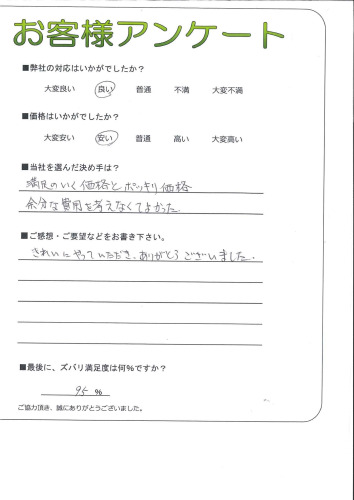 お客様アンケート
■弊社の対応はいかがでしたか？
大変良い 良い 普通 不満 大変不満
■価格はいかがでしたか？
大変安い 安い 普通 高い 大変高い
■当社を選んだ決め手は？
満足のいく価格とポッキリ価格
余分な費用を考えなくてよかった
■ご感想・ご要望などをお書き下さい。
きれいにやっていただき、ありがとうございました。
■最後に、ズバリ満足度は何％ですか？
95 ％
ご協力頂き、誠にありがとうございました。